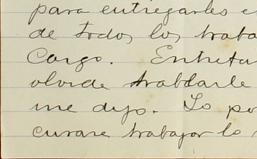 para entregarles e
de todos los traba
Cargo. Entretan
olvide hablarle
me dijo. Lo po
curare trabajar lo